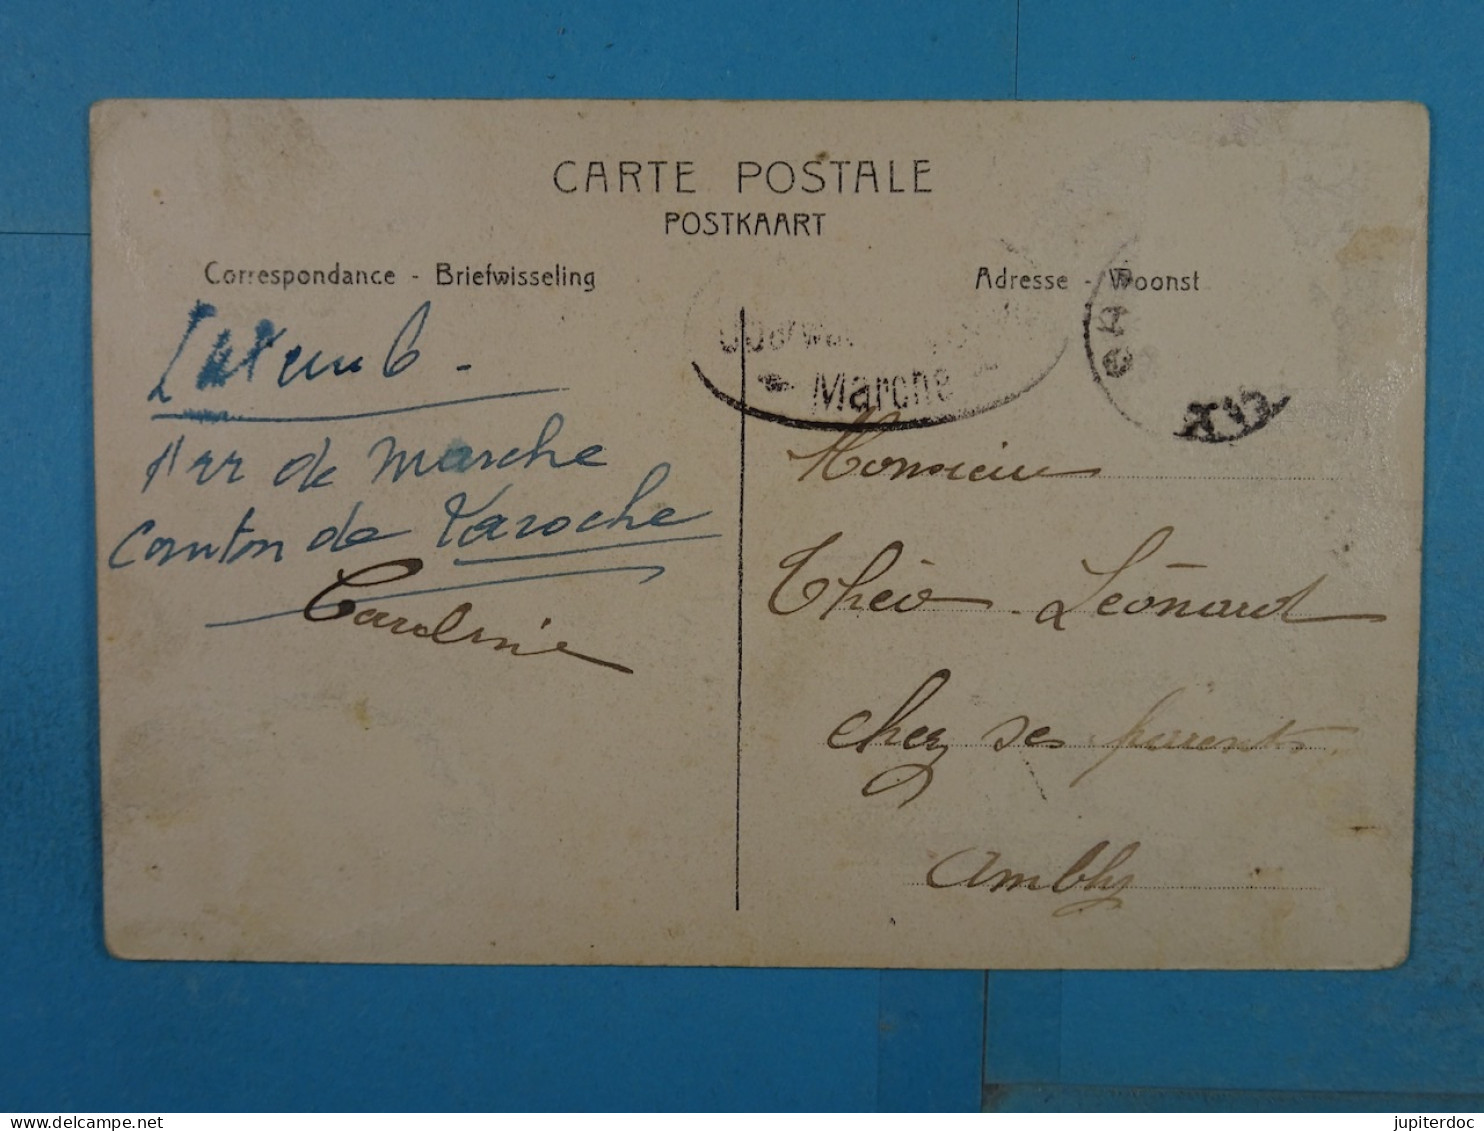 CARTE POSTALE
POSTKAART
Correspondance - Briefwisseling
Adresse - Woonst
Luxemb.
Arr de Marche
Canton de Laroche
Caroline
Marche
Monsieur
Théo Léonard
chez ses parents
Ambly
jupiterdoc